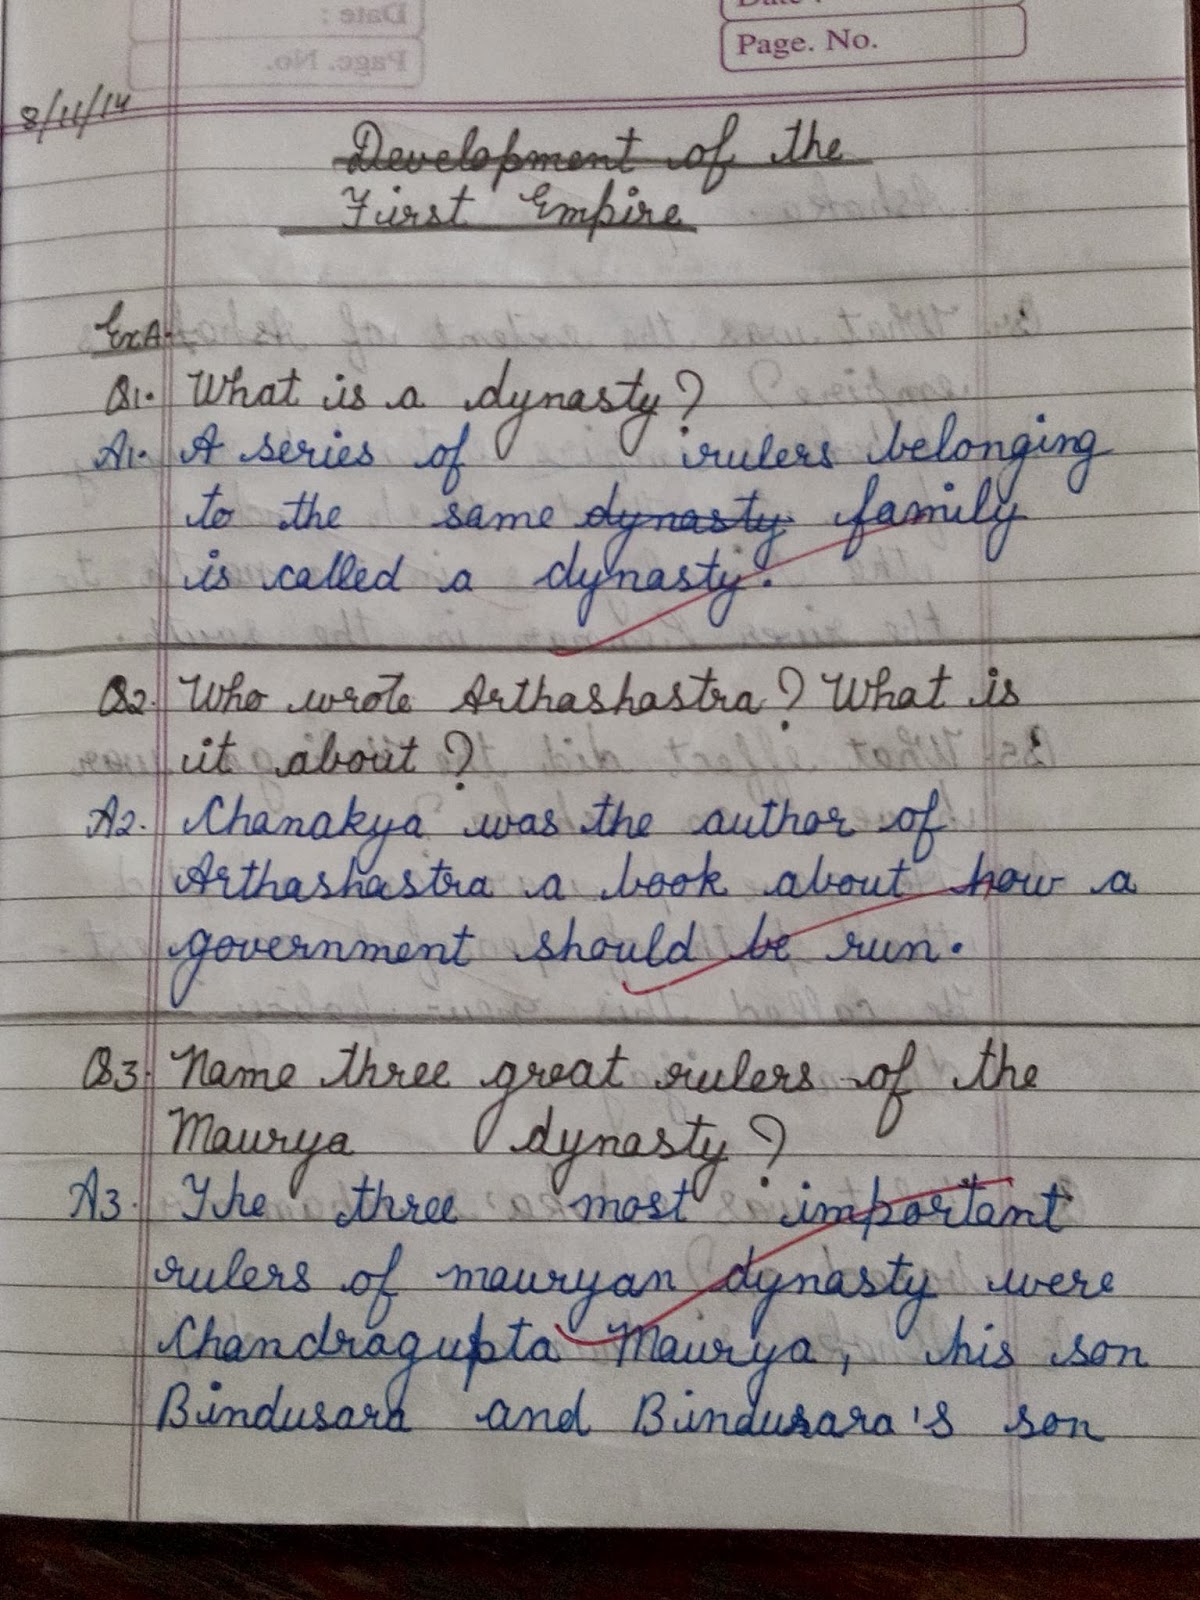 Date :
Page. No.
8/11/14
Development of the
First Empire
Ex A.
Q1. What is a dynasty?
A1. A series of rulers belonging
to the same dynasty family
is called a dynasty.
Q2. Who wrote Arthashastra? What is
it about?
A2. Chanakya was the author of
Arthashastra a book about how a
government should be run.
Q3. Name three great rulers of the
Maurya dynasty?
A3. The three most important
rulers of mauryan dynasty were
Chandragupta Maurya, his son
Bindusara and Bindusara's son